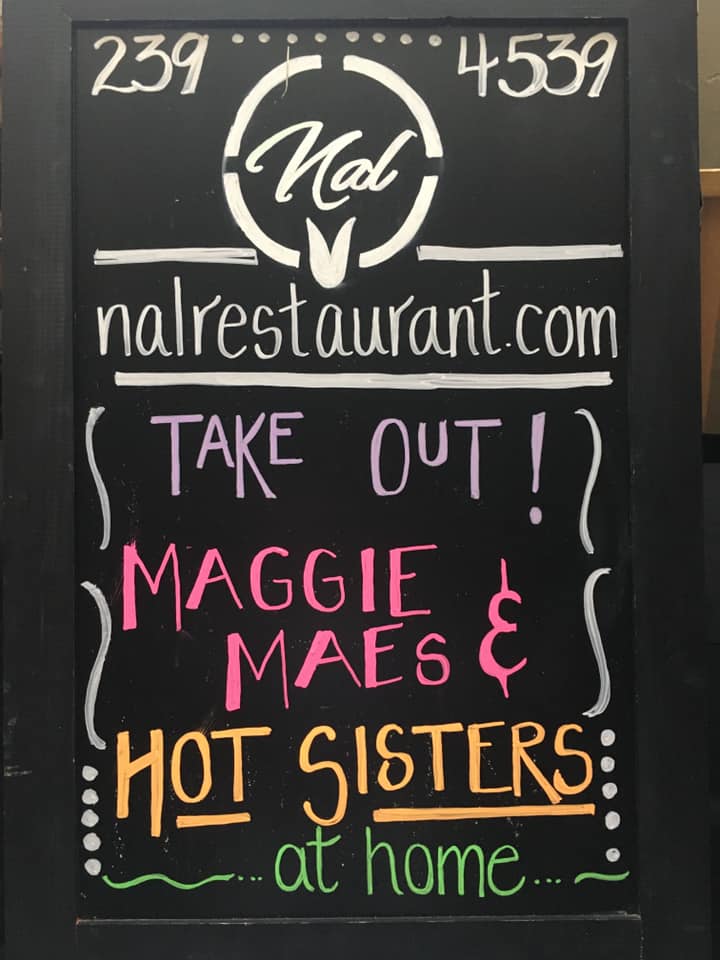 239 4539
Nal
nalrestaurant.com
TAKE OUT!
MAGGIE
MAES &
HOT SISTERS
...at home...